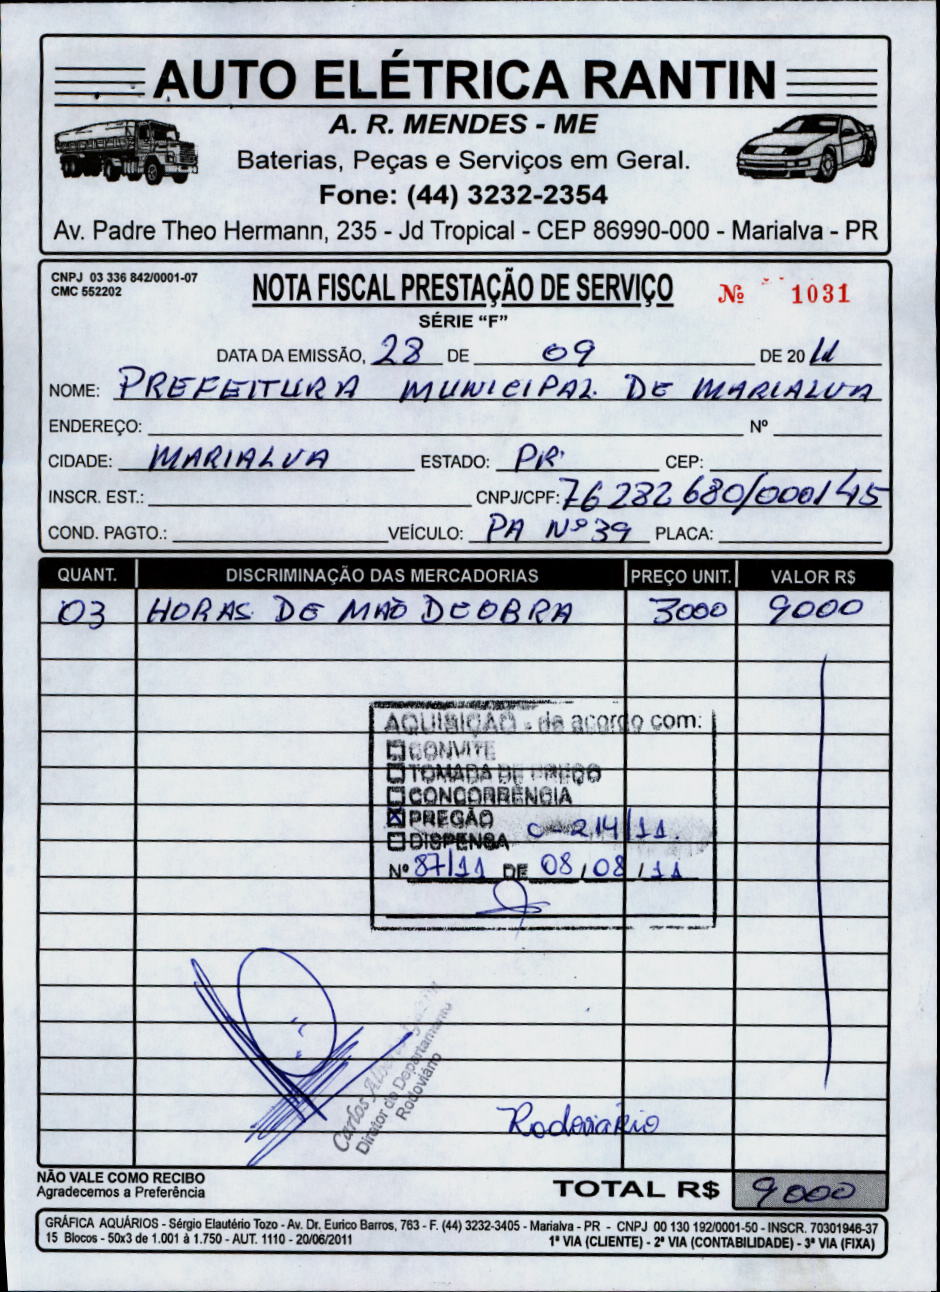 AUTO ELÉTRICA RANTIN
A. R. MENDES - ME
Baterias, Peças e Serviços em Geral.
Fone: (44) 3232-2354
Av. Padre Theo Hermann, 235 - Jd Tropical - CEP 86990-000 - Marialva - PR
CNPJ 03 336 842/0001-07
CMC 552202
NOTA FISCAL PRESTAÇÃO DE SERVIÇO
Nº 1031
SÉRIE "F"
DATA DA EMISSÃO, 28 DE 09 DE 2011
NOME: PREFEITURA MUNICIPAL DE MARIALVA
ENDEREÇO: Nº
CIDADE: MARIALVA ESTADO: PR CEP:
INSCR. EST.: CNPJ/CPF: 76 282 680/0001 45
COND. PAGTO.: VEÍCULO: PA Nº 39 PLACA:
QUANT. DISCRIMINAÇÃO DAS MERCADORIAS PREÇO UNIT. VALOR R$
03 HORAS DE MAO DEOBRA 3000 9000
AQUISIÇÃO - de acordo com:
CONVITE
TOMADA DE PREÇO
CONCORRÊNCIA
PREGÃO
DISPENSA C-214/11
Nº 87/11 DE 08/08/11
Carlos
Diretor do Departamento
Rodoviário
Rodoviário
NÃO VALE COMO RECIBO
Agradecemos a Preferência
TOTAL R$ 9000
GRÁFICA AQUÁRIOS - Sérgio Elautério Tozo - Av. Dr. Eurico Barros, 763 - F. (44) 3232-3405 - Marialva - PR - CNPJ 00 130 192/0001-50 - INSCR. 70301946-37
15 Blocos - 50x3 de 1.001 à 1.750 - AUT. 1110 - 20/06/2011 1ª VIA (CLIENTE) - 2ª VIA (CONTABILIDADE) - 3ª VIA (FIXA)